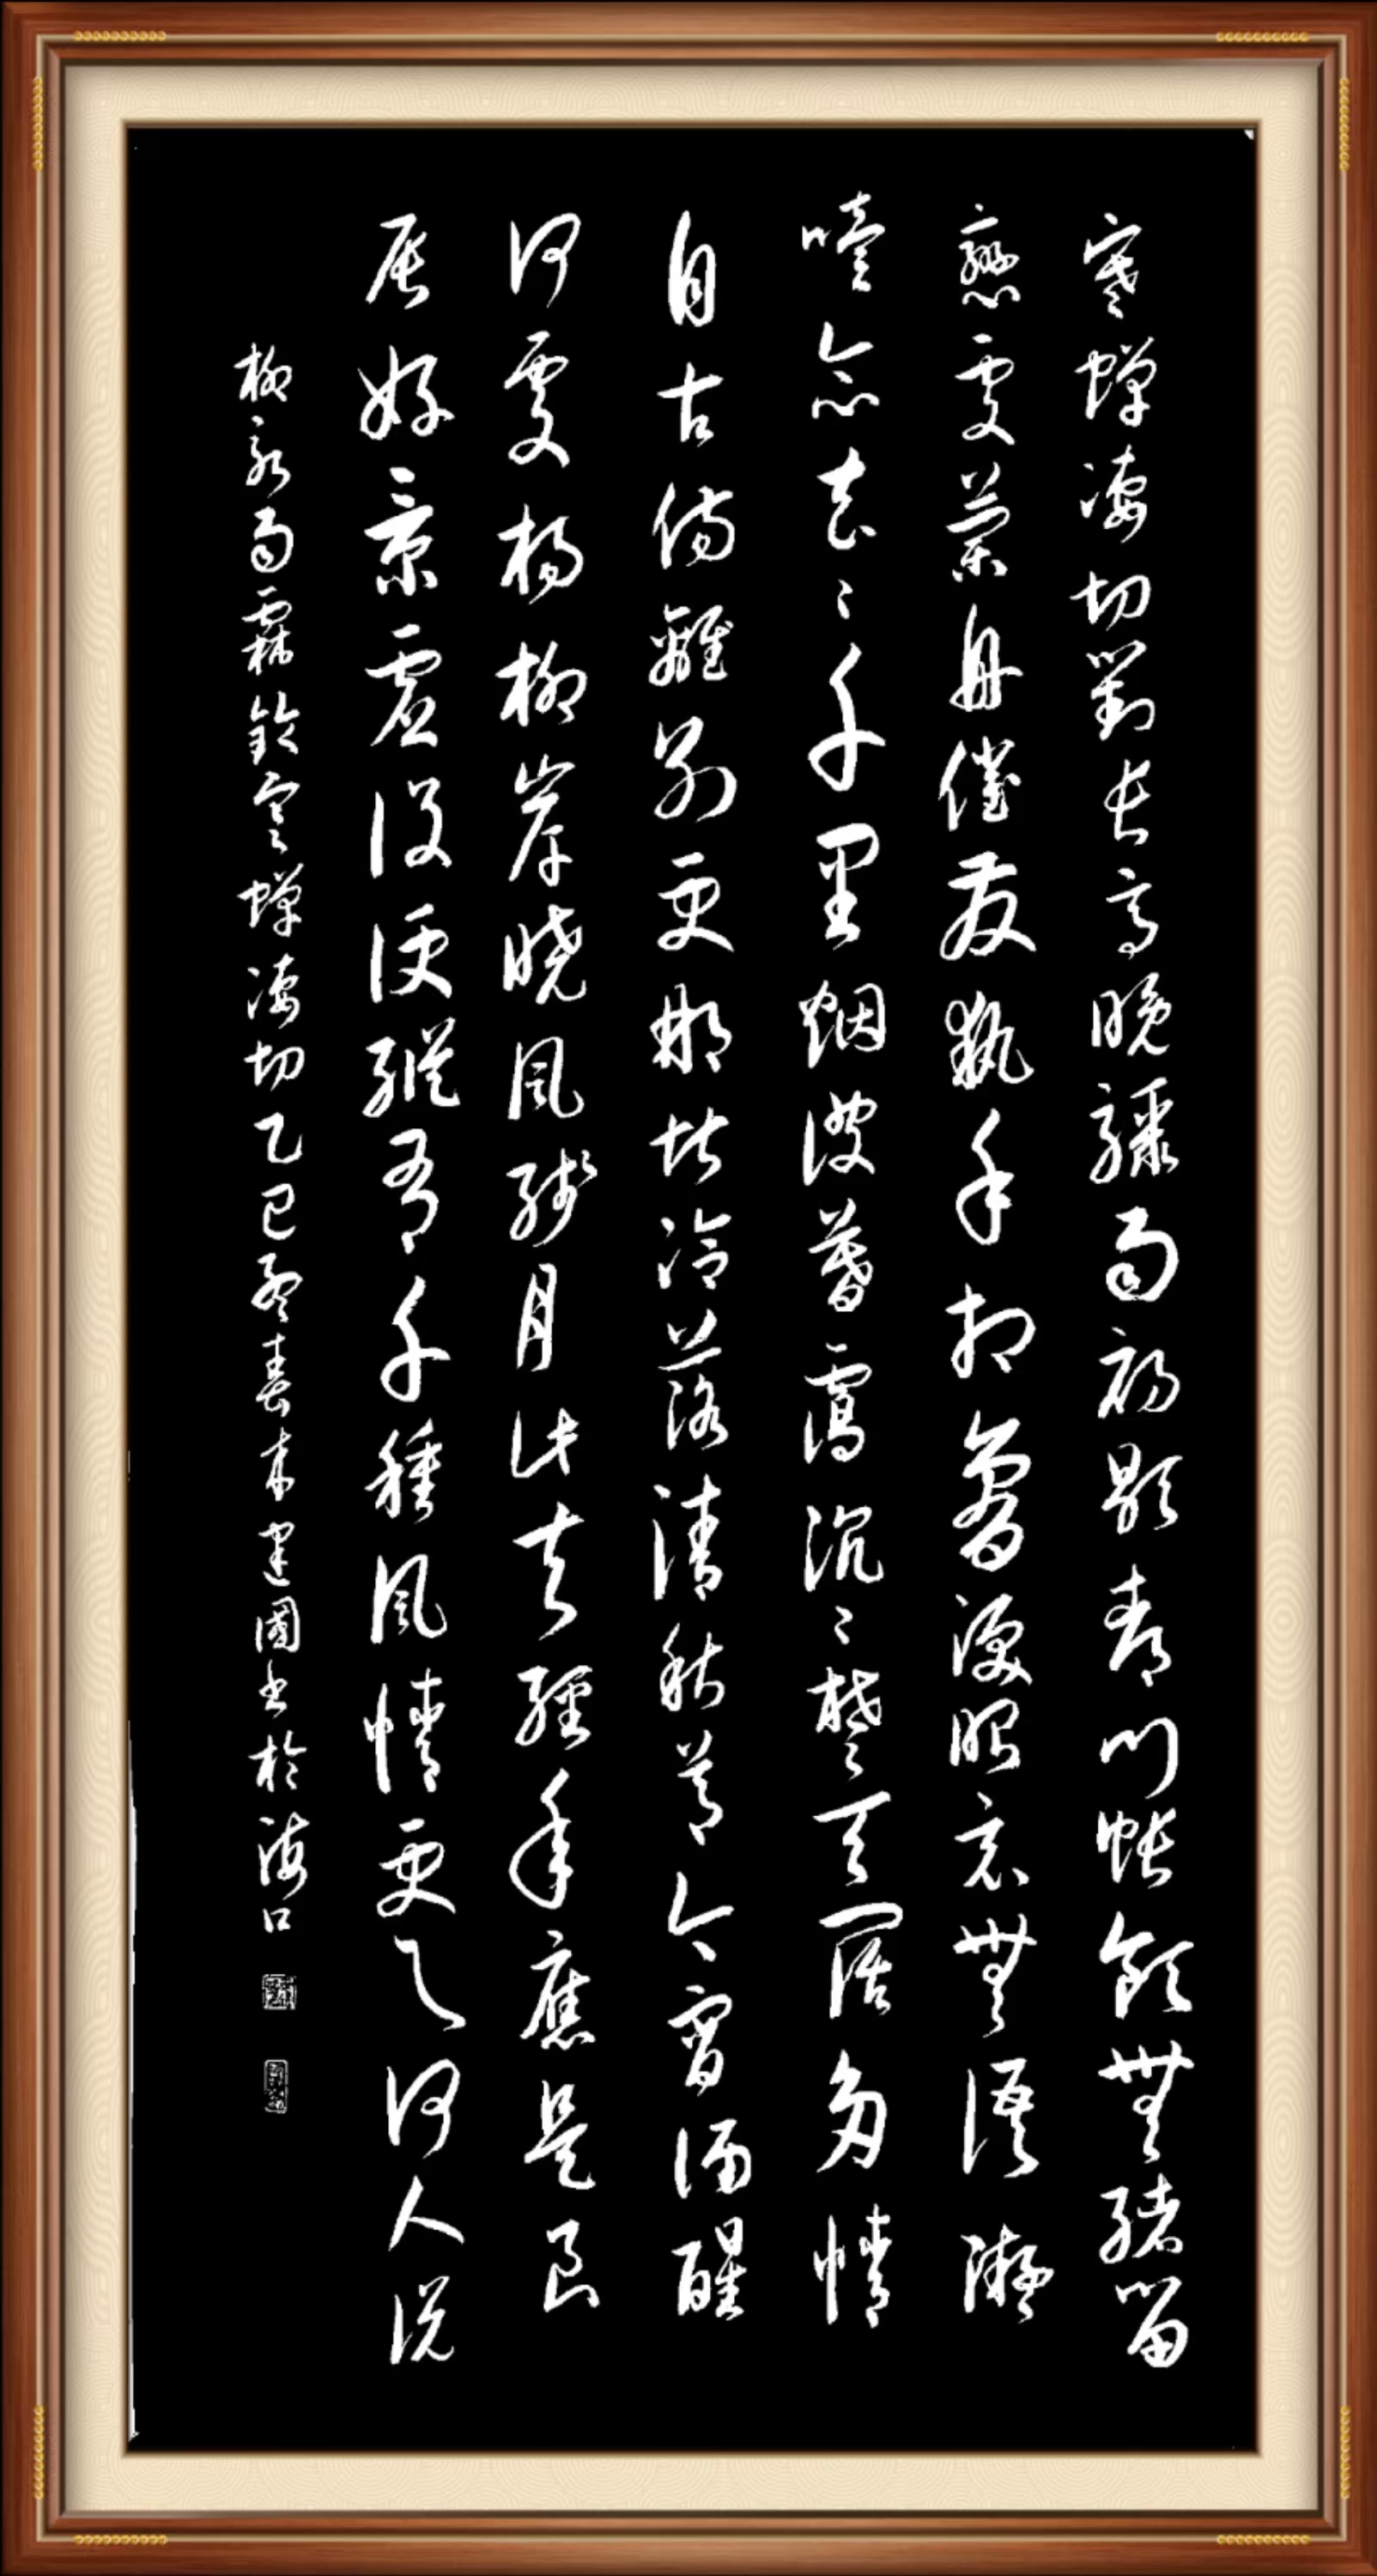 寒蟬凄切對長亭晚驟雨初歇都門帳飲無緒留
戀處蘭舟催發執手相看淚眼竟無語凝
噎念去々千里烟波暮靄沉々楚天闊多情
自古傷離別更那堪冷落清秋節今宵酒醒
何處楊柳岸曉風殘月此去經年應是良
辰好景虛設便縱有千種風情更與何人說
柳永雨霖鈴寒蟬凄切乙巳春建國書於海口